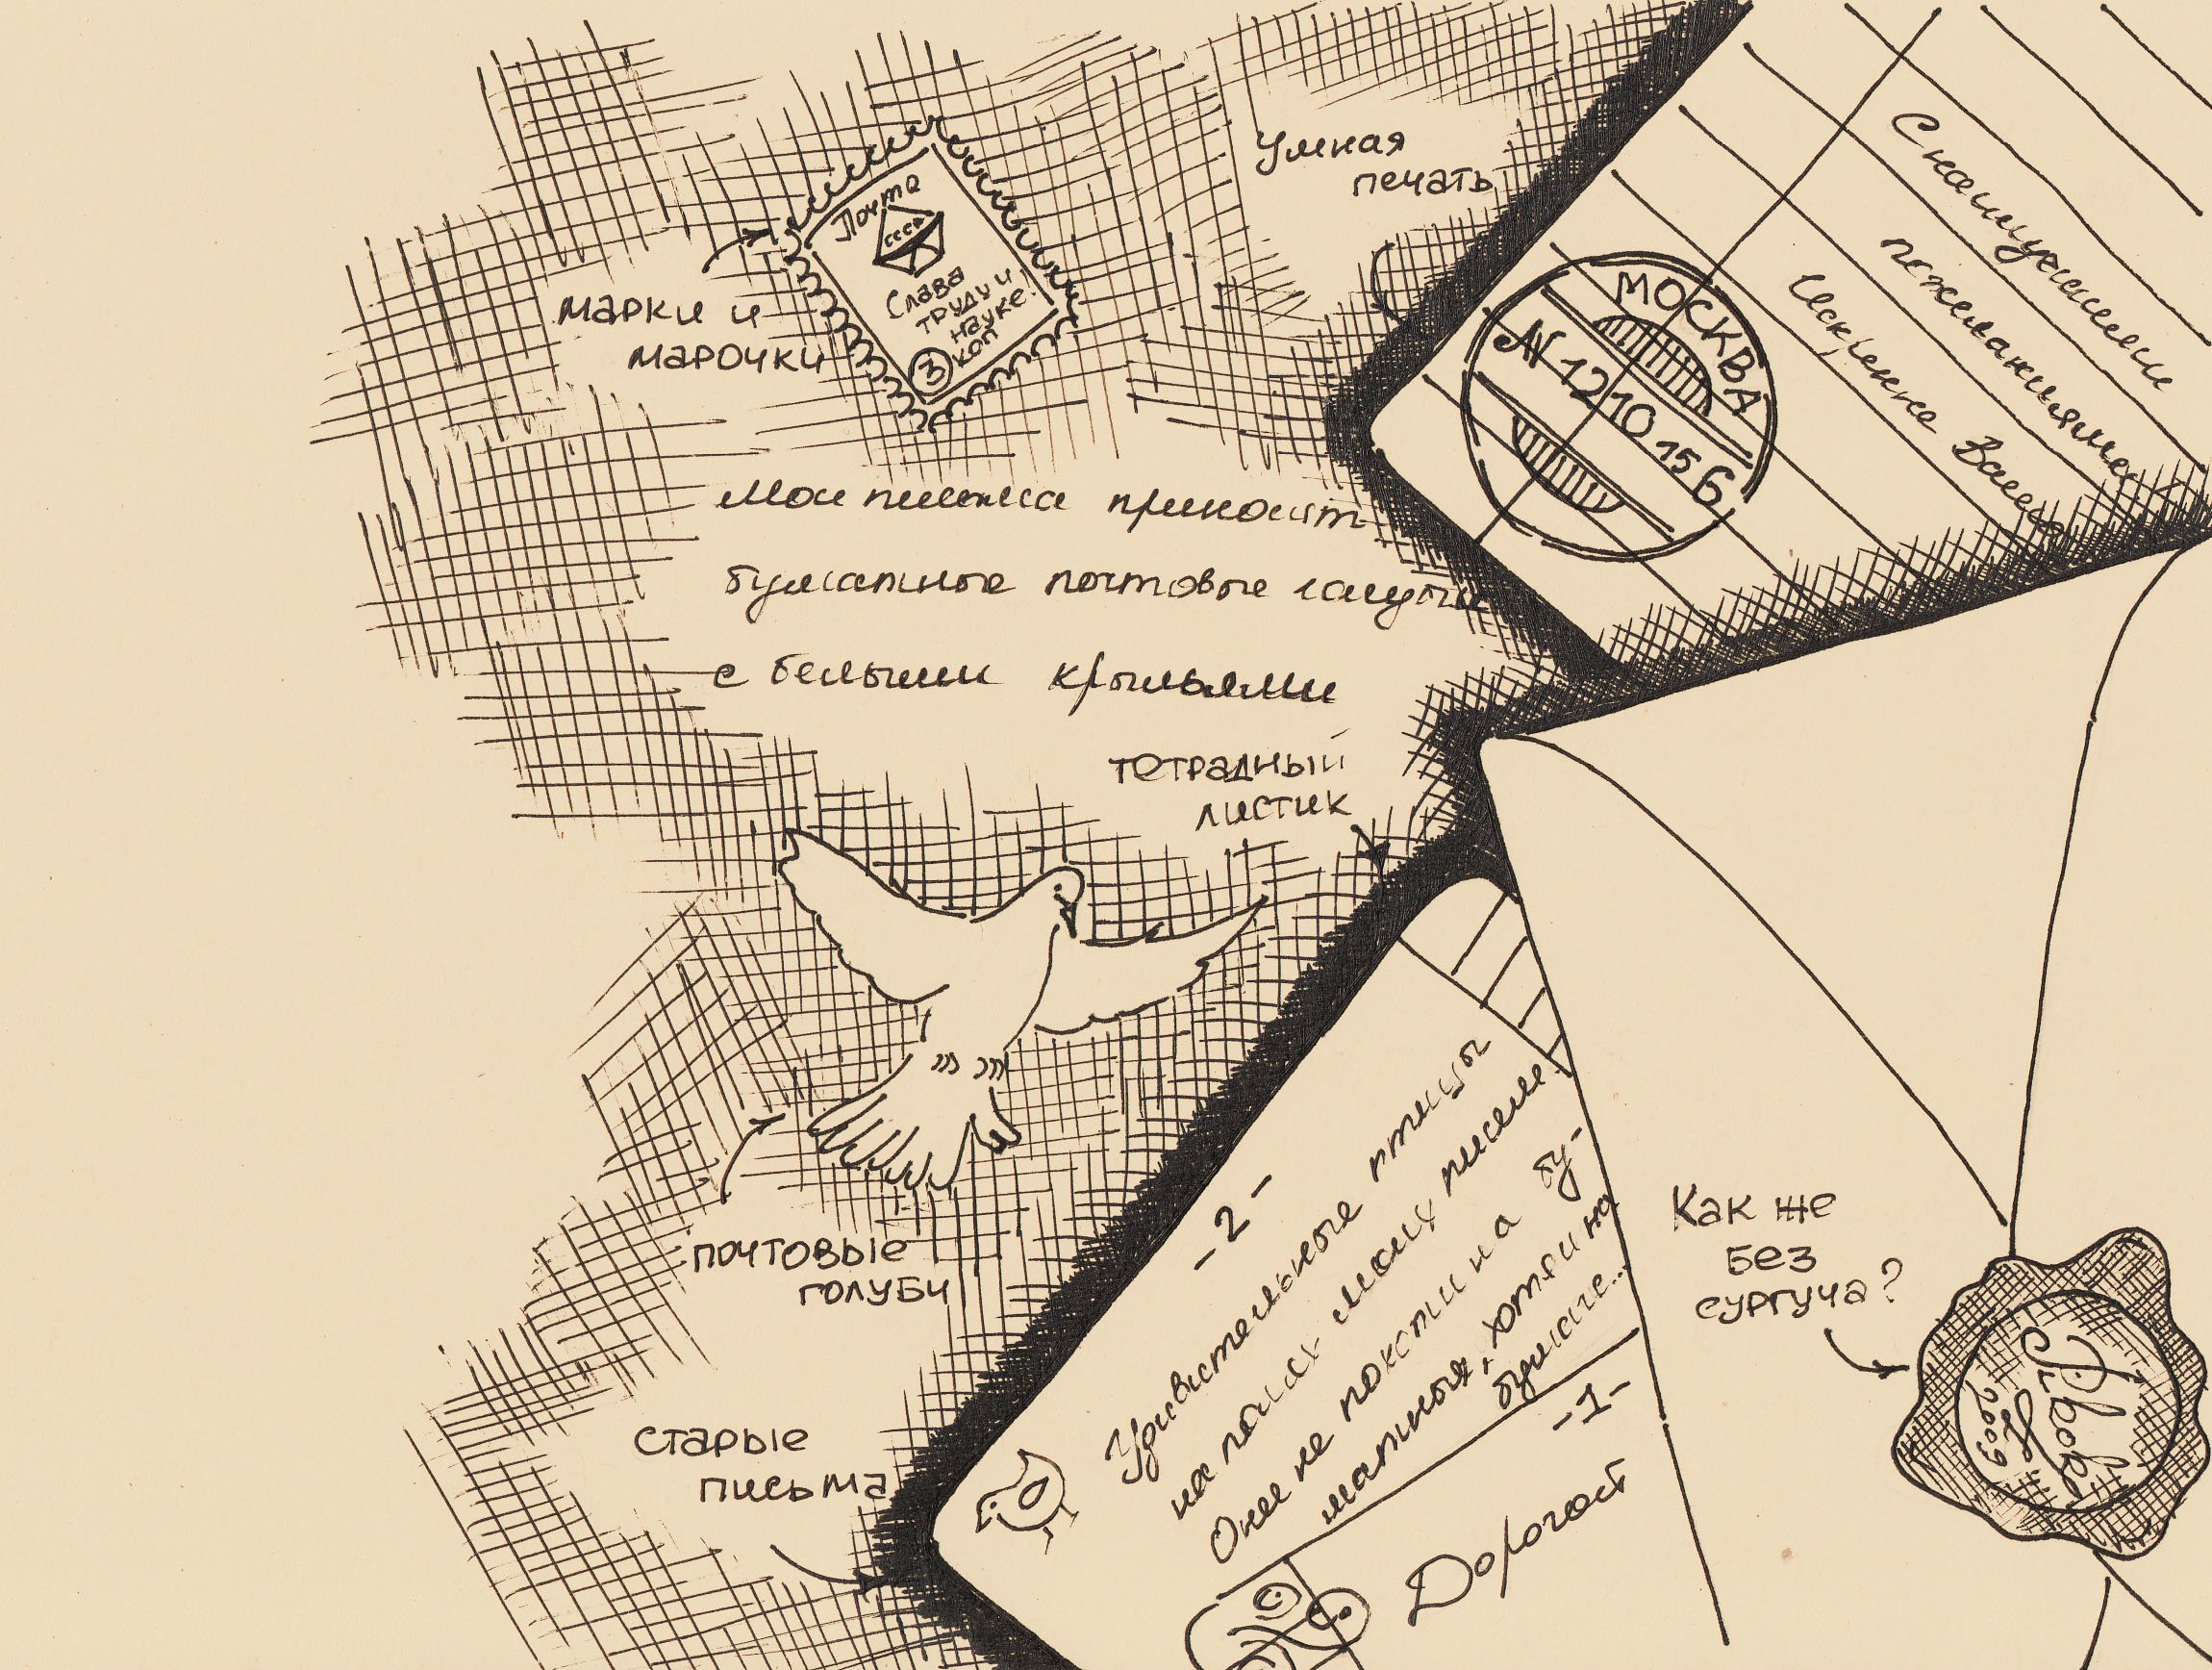 Почта
СССР
Слава
труду и
науке!
3 коп
марки и
марочки
Умная
печать
МОСКВА
12 10 15 6
С наилучшими
пожеланиями
Искренне Ваш
Мои письма приносят
бумажные почтовые голуби
с белыми крыльями
тетрадный
листик
почтовые
голуби
старые
письма
-2-
Удивительные птицы
на полях моих писем.
Они не похожи на бу-
мажных, хотя и на
бумаге...
-1-
Дорогой
Как же
без
сургуча?
2009